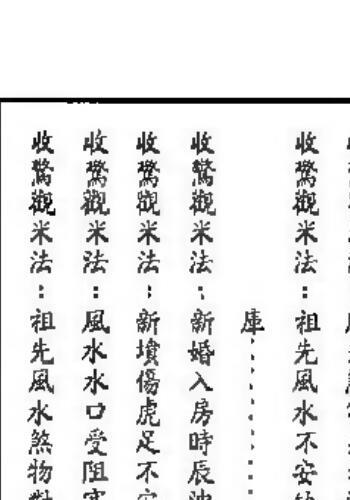 收驚觀米法：祖先風水不安
庫
收驚觀米法：新婚入房時辰
收驚觀米法：新墳傷虎足不
收驚觀米法：風水水口受阻
收驚觀米法：祖先風水煞物